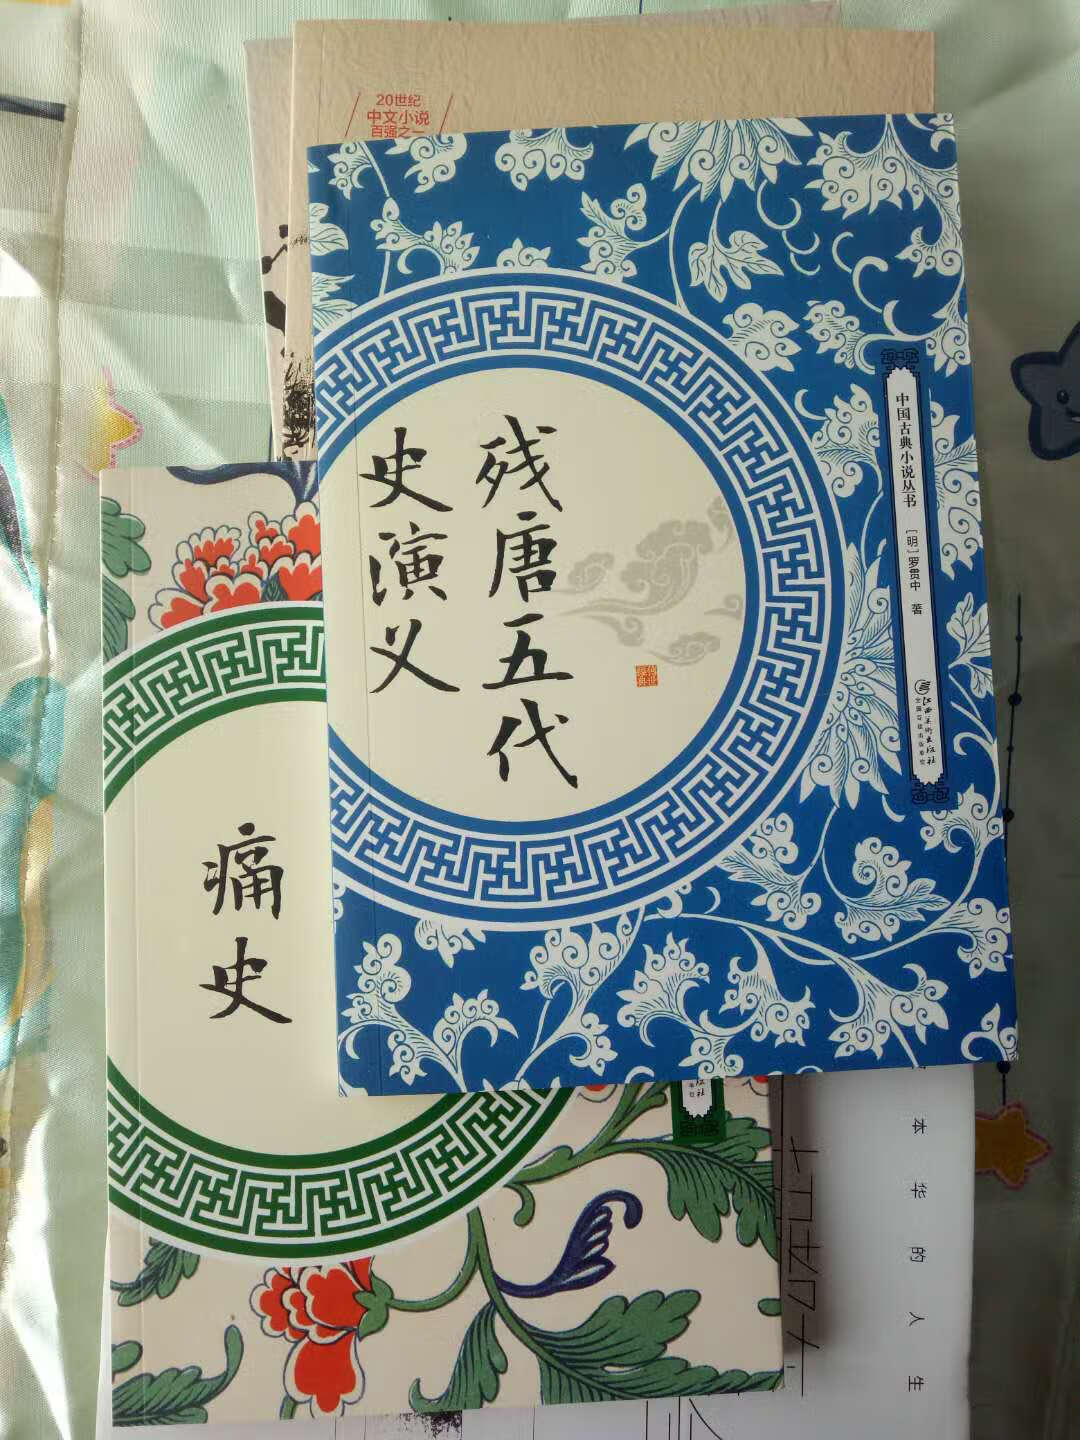 20世纪
中文小说
百强之一
残唐五代
史演义
中国古典小说丛书
［明］罗贯中 著
江西美术出版社
全国百佳出版单位
痛史
版社
本华的人生